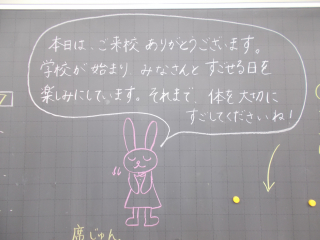 本日は、ご来校 ありがとうございます。
学校が 始まり みなさんと すごせる日を
楽しみにしています。それまで、体を大切に
すごしてくださいね！
席じゅん